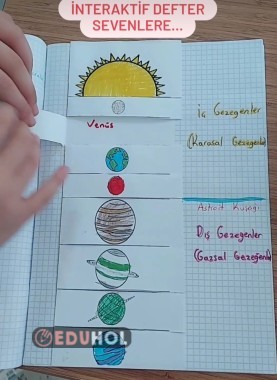 İNTERAKTİF DEFTER
SEVENLERE...
Venüs
İç Gezegenler
(Karasal Gezegenler
Asteroit Kuşağı
Dış Gezegenler
(Gazsal Gezegenler
EDUHOL